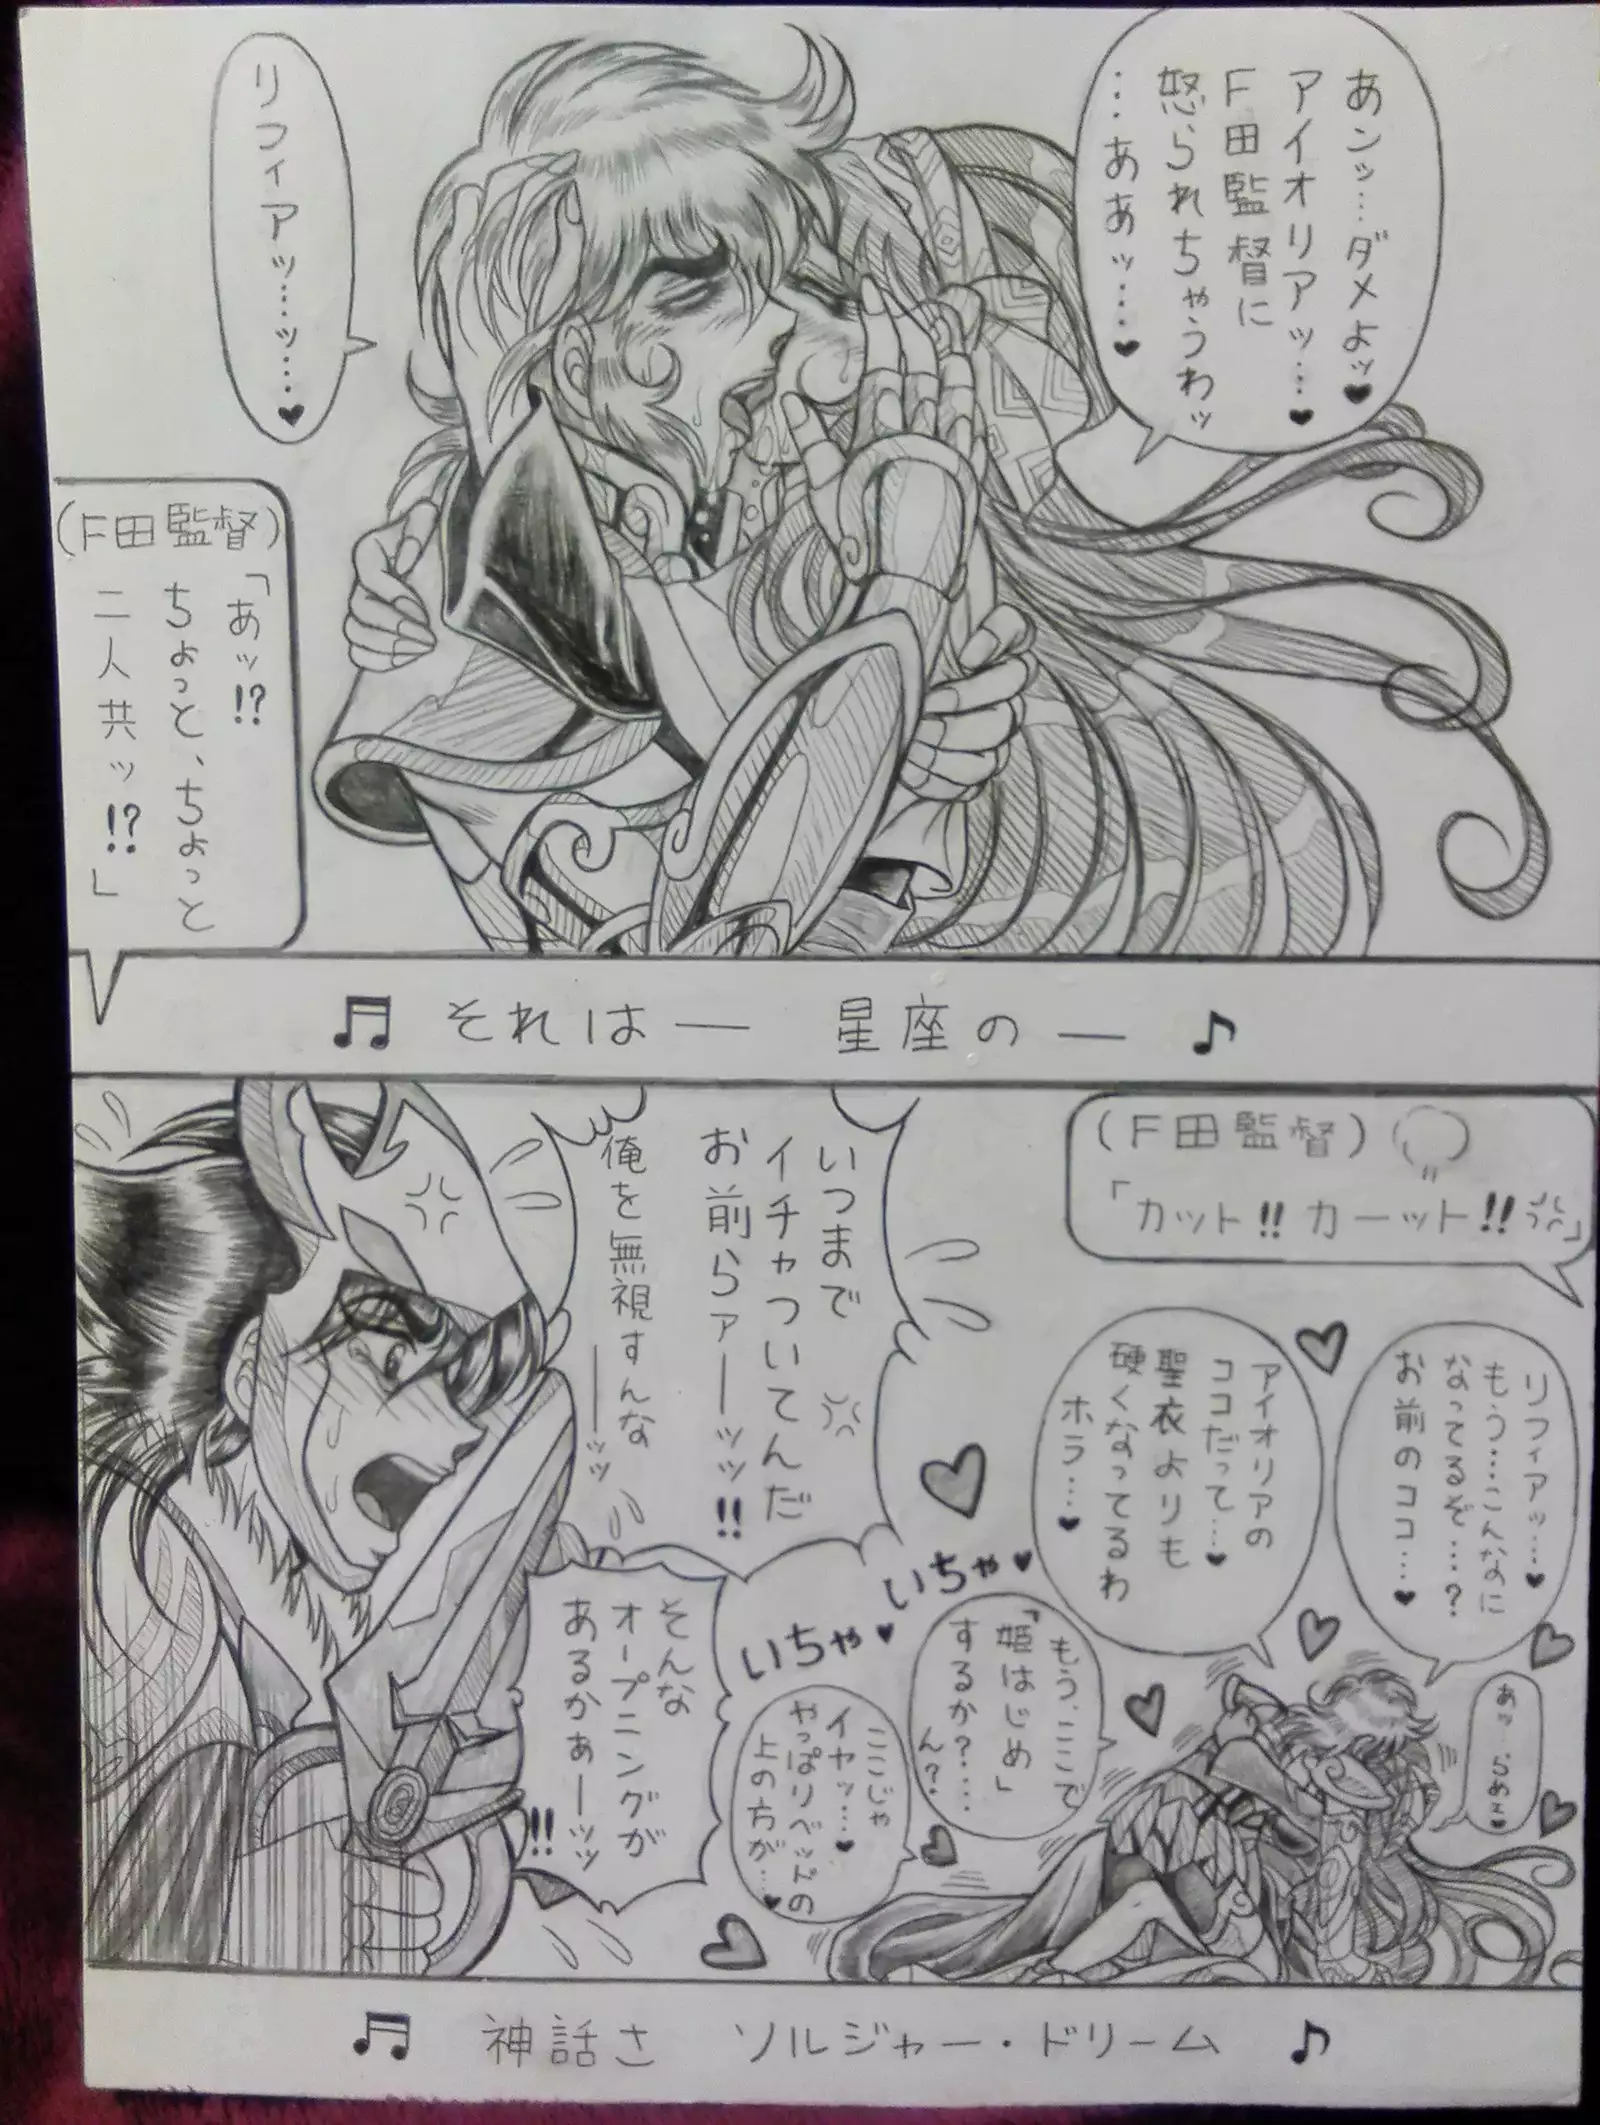 あンッ…ダメよッ♥
アイオリアッ…♥
F田監督に
怒られちゃうわッ
…ああッ…♥
リフィアッ…ッ…♥
(F田監督)
「あッ!?
ちょっと、ちょっと
二人共ッ!?」
♬ それは― 星座の― ♪
(F田監督)
「カット!!カーット!!」
リフィアッ…♥
もう…こんなに
なってるぞ…?
お前のココ…♥
アイオリアの
ココだって…♥
聖衣よりも
硬くなってるわ
ホラ…♥
いつまで
イチャついてんだ
お前らァーッッ!!
俺を無視すんな
――ッッ
いちゃ♥
いちゃ♥
あッ…らめェ♥
もう、ここで
「姫はじめ」
するか?…
ん?
ここじゃ
イヤッ…♥
やっぱりベッドの
上の方が…♥
そんな
オープニングが
あるかぁーッッ
!!
♬ 神話さ ソルジャー・ドリーム ♪